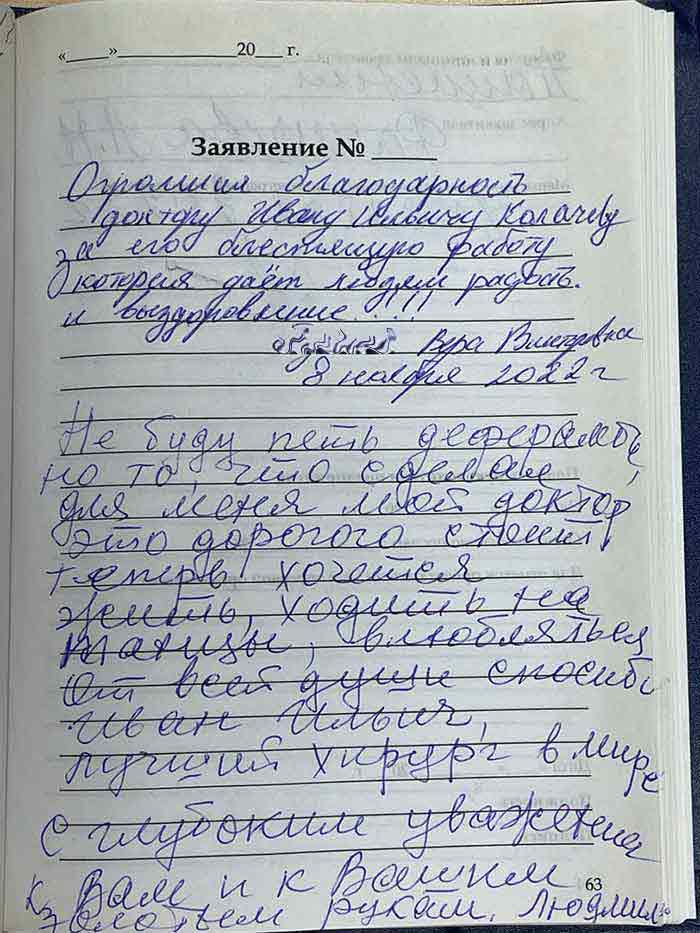 «____»____________20___ г.
Заявление № _____
Огромная благодарность
доктору Ивану Ильичу Колачеву
за его блестящую работу
которая даёт людям радость
и выздоровление !!!
Вера Викторовна
8 ноября 2022 г
Не буду петь деферамбы,
но то, что сделал
для меня мой доктор
это дорогого стоит,
теперь хочется
жить, ходить на
танцы, влюбляться
От всей души спасибо
Иван Ильич,
лучший хирург в мире
С глубоким уважением
к Вам и к Вашим
золотым рукам, Людмила
63